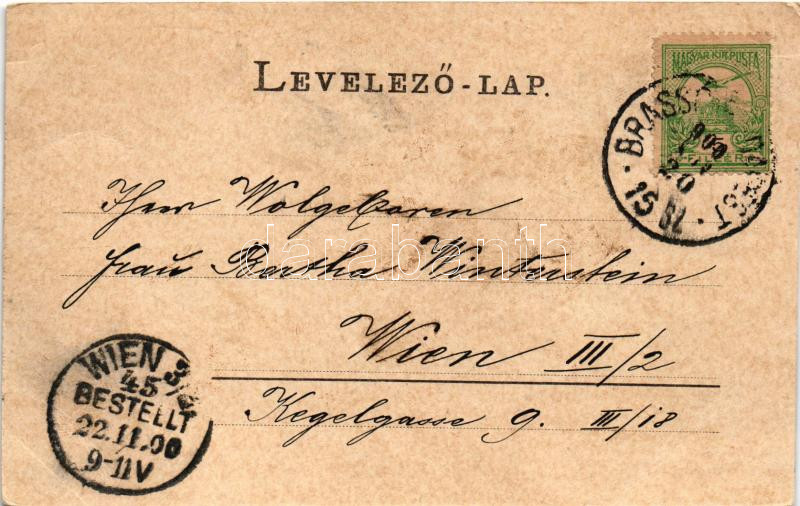 LEVELEZŐ-LAP.
MAGYAR KIR. POSTA
FILLÉR
BRASSÓ
900
20
15 N
Ihrer Wolgeboren
Frau Bertha Winterstein
Wien III/2
Kegelgasse 9. III/18
WIEN 3/
45
BESTELLT
22.11.00
9-11V
darabanth